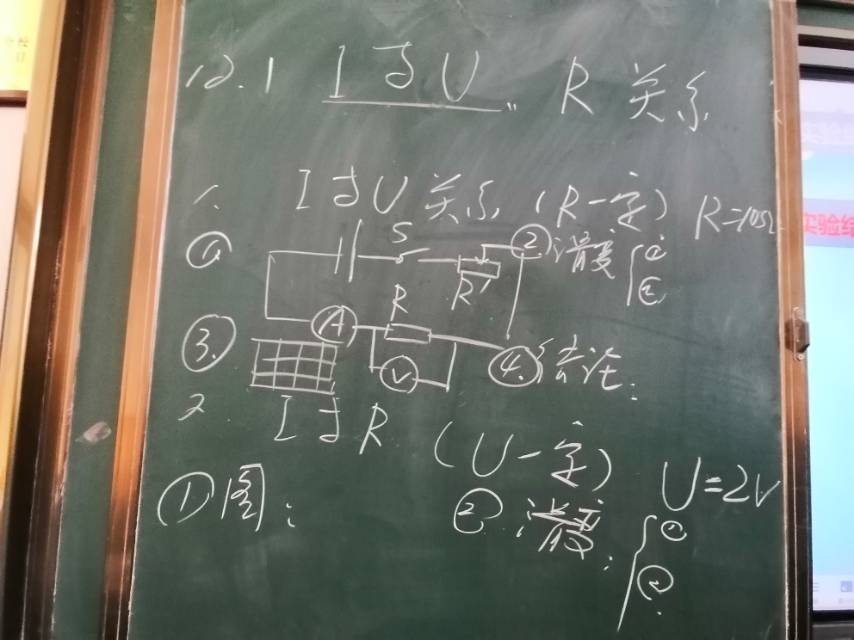 12.1 I与U R关系
1. I与U关系（R一定） R=10Ω
① S R' ②滑变{① ②
A R V
③ ④结论：
2. I与R （U一定） U=2V
①图： ②滑变：{① ②
实验结